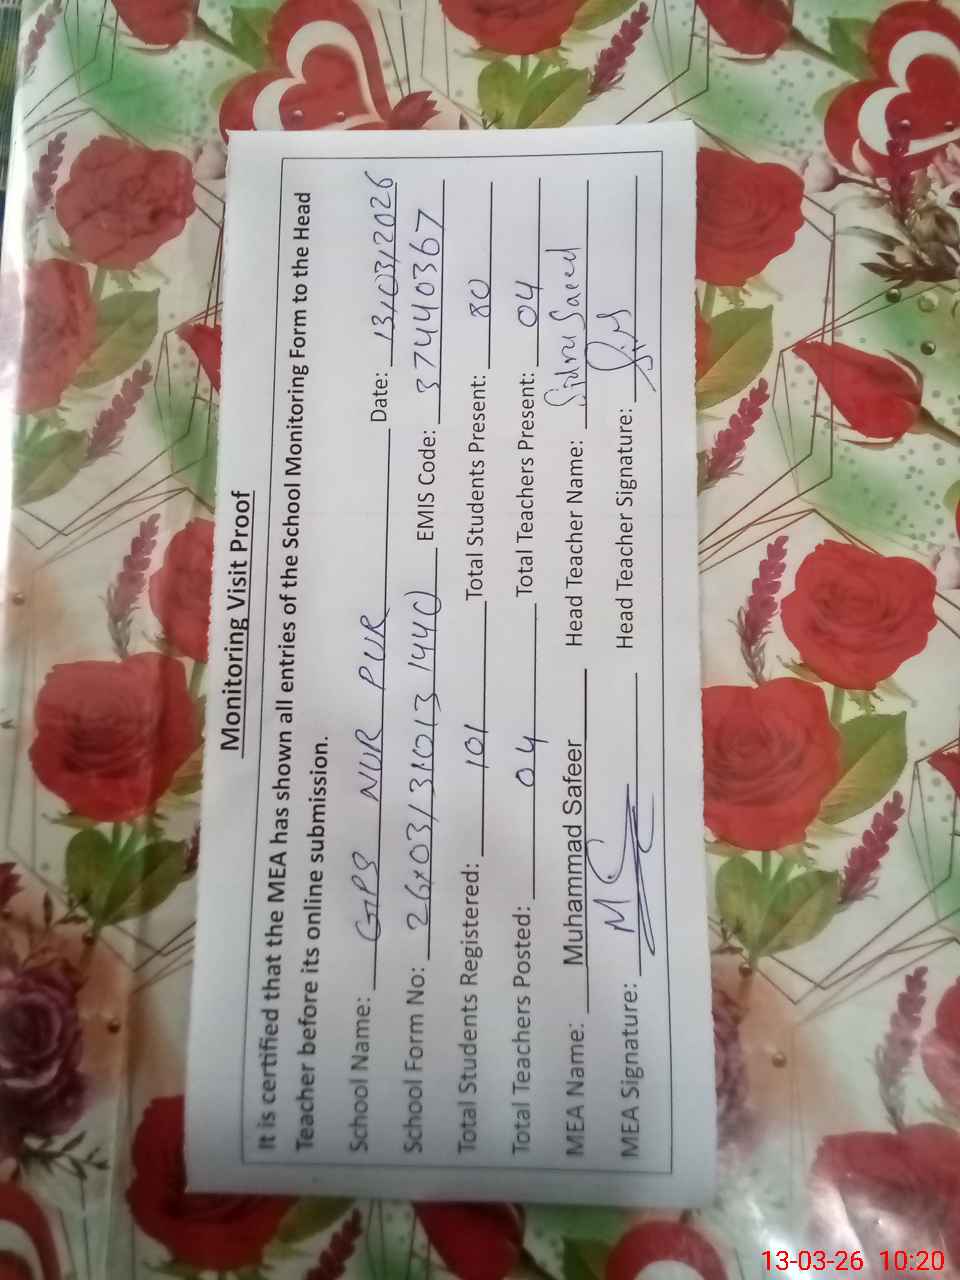 Monitoring Visit Proof
It is certified that the MEA has shown all entries of the School Monitoring Form to the Head
Teacher before its online submission.
School Name: GPS NUR PUR Date: 13/03/2026
School Form No: 26031310131440 EMIS Code: 37440367
Total Students Registered: 101 Total Students Present: 80
Total Teachers Posted: 04 Total Teachers Present: 04
MEA Name: Muhammad Safeer Head Teacher Name: Sidra Saeed
MEA Signature: Head Teacher Signature:
13-03-26 10:20